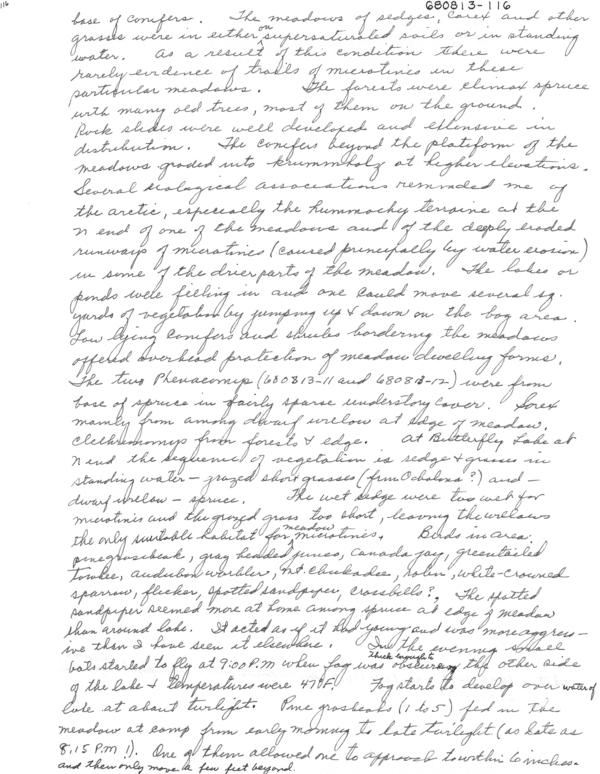 116
680813-116
base of conifers. The meadows of sedges, carex and other
grasses were in either on supersaturated soils or in standing
water. As a result of this condition there were
rarely evidence of trails of microtines in these
particular meadows. The forests were climax spruce
with many old trees, most of them on the ground.
Rock slides were well developed and extensive in
distribution. The conifers beyond the platform of the
meadows graded into krummholz at higher elevations.
Several ecological associations reminded me of
the arctic, especially the hummocky terraine at the
N end of one of the meadows and of the deeply eroded
runways of microtines (caused principally by water erosion)
in some of the drier parts of the meadow. The lakes or
ponds were filling in and one could move several sq.
yards of vegetation by jumping up & down on the bog area.
Low lying conifers and shrubs bordering the meadows
offered overhead protection of meadow dwelling forms.
The two Phenacomys (680813-11 and 680813-12) were from
base of spruce in fairly sparse understory cover. Sorex
mainly from among dwarf willow at edge of meadow.
Clethrionomys from forests & edge. At Butterfly Lake at
N end the sequence of vegetation is sedge & grasses in
standing water – grazed short grasses (from Ochotona?) and –
dwarf willow – spruce. The wet sedge were two wet for
microtinis and the grazed grass too short, leaving the willows
the only suitable habitat for meadow microtinis. Birds in area:
pine grosbeak, gray headed junco, Canada jay, greentailed
towhee, audubon warbler, mt. chickadee, robin, white-crowned
sparrow, flicker, spotted sandpiper, crossbills?. The spotted
sandpiper seemed more at home among spruce at edge of meadow
than around lake. It acted as if it had young and was more aggress-
ive than I have seen it elsewhere. In the evening small
bats started to fly at 9:00 P.M when fog was thick enough to obscure the other side
of the lake & temperatures were 47°F. Fog starts to develop over water of
lake at about twilight. Pine grosbeaks (1 to 5) fed in the
meadow at camp from early morning to late twilight (as late as
8:15 P.M!). One of them allowed one to approach to within 10 inches
and then only move a few feet beyond.